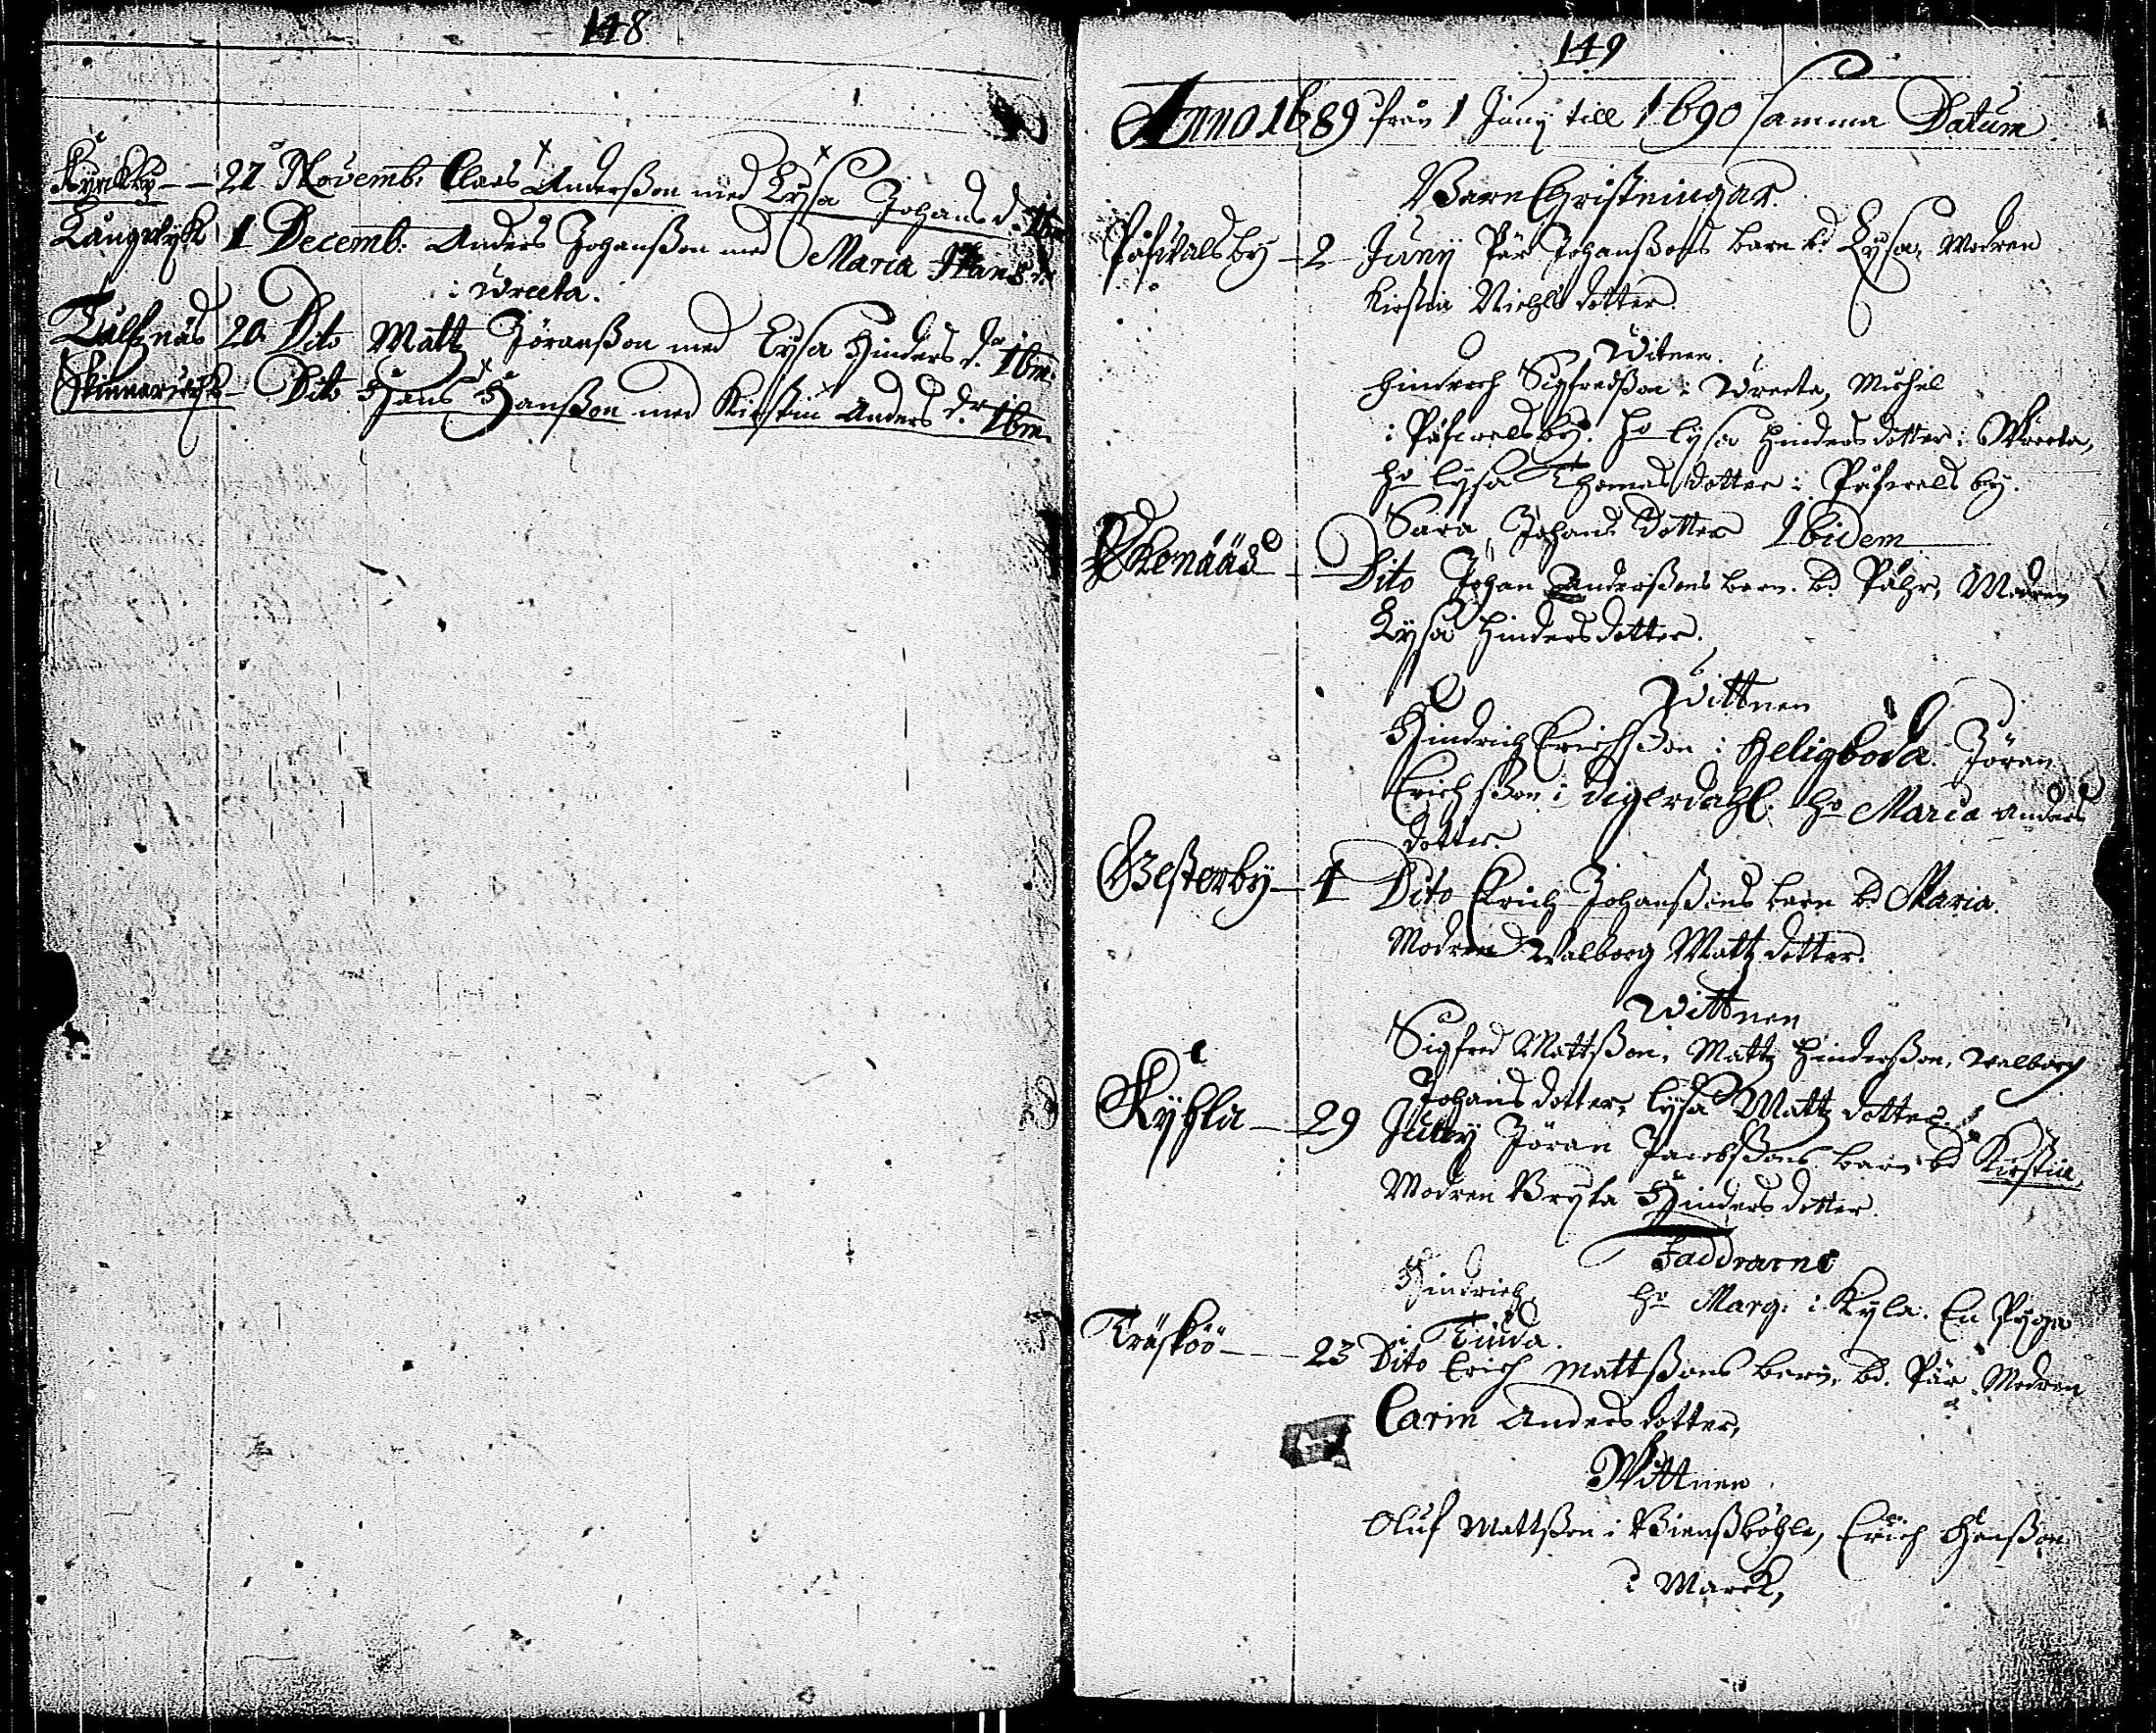 148
Kyrckby — 27 Novemb: Claes Anderßon med Lysa Johans d. Ibm
Långwyk 1 Decemb: Anders Johanßon med Maria Hans dr
i Wreeta.
20 Dito Matz Jöranßon med Lysa Hinders dr. Ibm.
Dito Hans Hanßon med Kirstin Anders dr. Ibm.
149
Anno 1689 från 1 Juny till 1690 samma Datum
Barn Christningar.
Påfwalsby — 2 Juny Pär Johanßons barn bd Lysa, Modren
Kirstin Michels dotter.
Witnen.
Hindrich Sigfredßon i Wreeta, Michel
i Påfwelsby. ho Lysa Hinders dotter i Wreeta,
ho Lysa Thomas dotter i Påfwels by.
Sara Johans dotter Ibidem
Ekenääs — Dito Johan Anderßons barn bd Påhr, Modren
Lysa Hinders dotter.
Wittnen
Hindrich Erichßon i Heligboda. Jöran
Erichßon i Digerdahl. ho Maria Anders
dotter.
Westerby — 4 Dito Erich Johanßons barn bd Maria.
Modren Walborg Matz dotter.
Wittnen
Sigfred Mattßon, Matz Hinderßon, Walborg
Johans dotter, Lysa Matz dotter.
Kyhla — 29 July Jöran Jacobßons barn bd Kirstin,
Modren Bryta Hinders dotter.
Faddrarne
Hindrich ho Marg: i Kyla. En Pyga
i
Träsköö — 23 Dito Erich Mattßons barn bd. Pär Modren
Carin Anders dotter,
Wittnen
Oluf Mattßon i Biensböhle, Erich Hanßon
i Marck,